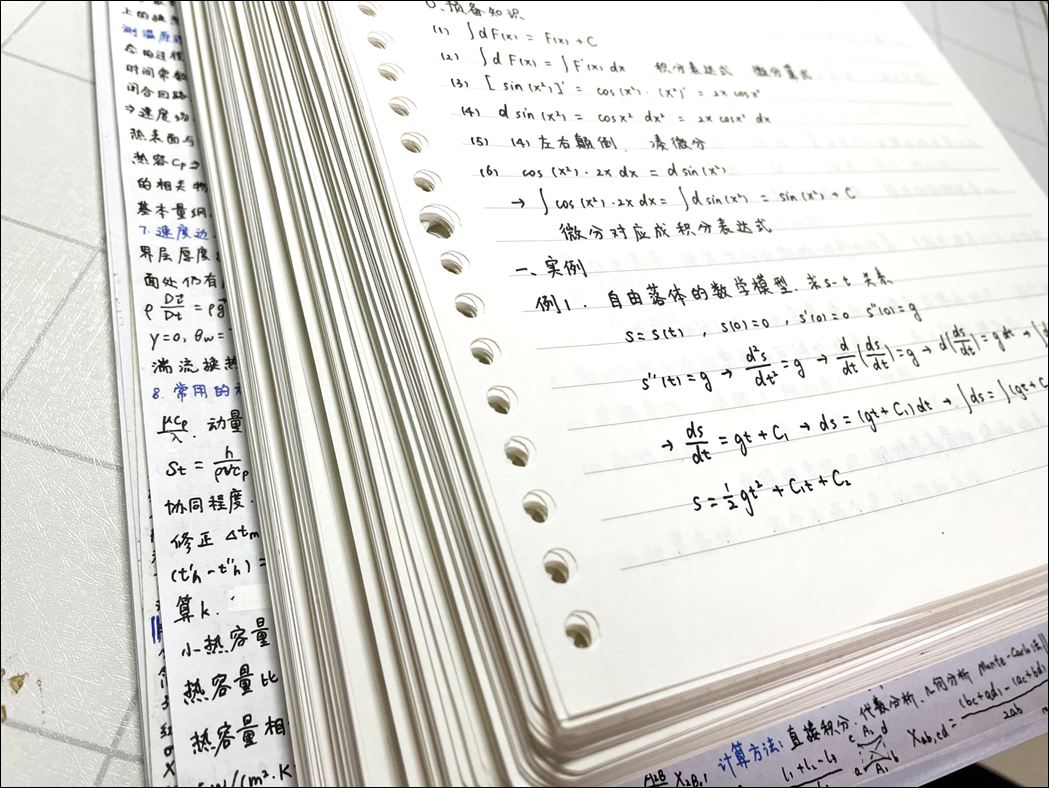 0. 预备知识
(1) ∫dF(x) = F(x) + C
(2) ∫dF(x) = ∫F'(x) dx 积分表达式 微分算式
(3) [sin(x²)]' = cos(x²)·(x²)' = 2x cosx²
(4) d sin(x²) = cosx² dx² = 2x cosx² dx
(5) (4)左右颠倒. 凑微分
(6) cos(x²)·2x dx = d sin(x²)
→ ∫cos(x²)·2x dx = ∫d sin(x²) = sin(x²) + C
微分对应成积分表达式
一、实例
例1. 自由落体的数学模型. 求s-t关系
s = s(t), s(0)=0, s'(0)=0 s''(0)=g
s''(t) = g → d²s/dt² = g → d/dt(ds/dt) = g → d(ds/dt) = g dt →
→ ds/dt = gt + C₁ → ds = (gt + C₁)dt → ∫ds = ∫(gt + C
s = ½gt² + C₁t + C₂
上的
测温
态的过程
时间常数
闭合回路
→速度场
热表面与
热容Cp
的相关物
基本量纲
7. 速度边
界层厚度
面处仍有
ρ Dv/Dt = ρg
y=0, θw=
湍流换热
8. 常用的
μCp/λ. 动量
St = h/ρvcp
协同程度.
修正 Δtm
(t'h - t''h) =
算k.
小热容量
热容量比
热容量相
W/(m²·K
计算方法: 直接积分. 代数分析. 几何分析. Monte-Carlo法
X₂B,1 l₁+l₂-l₃ c A₂ d a A₁ b Xab,cd = (bc+ad)-(ac+bd)/2ab